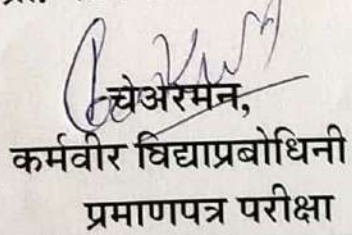 चेअरमन,
कर्मवीर विद्याप्रबोधिनी
प्रमाणपत्र परीक्षा